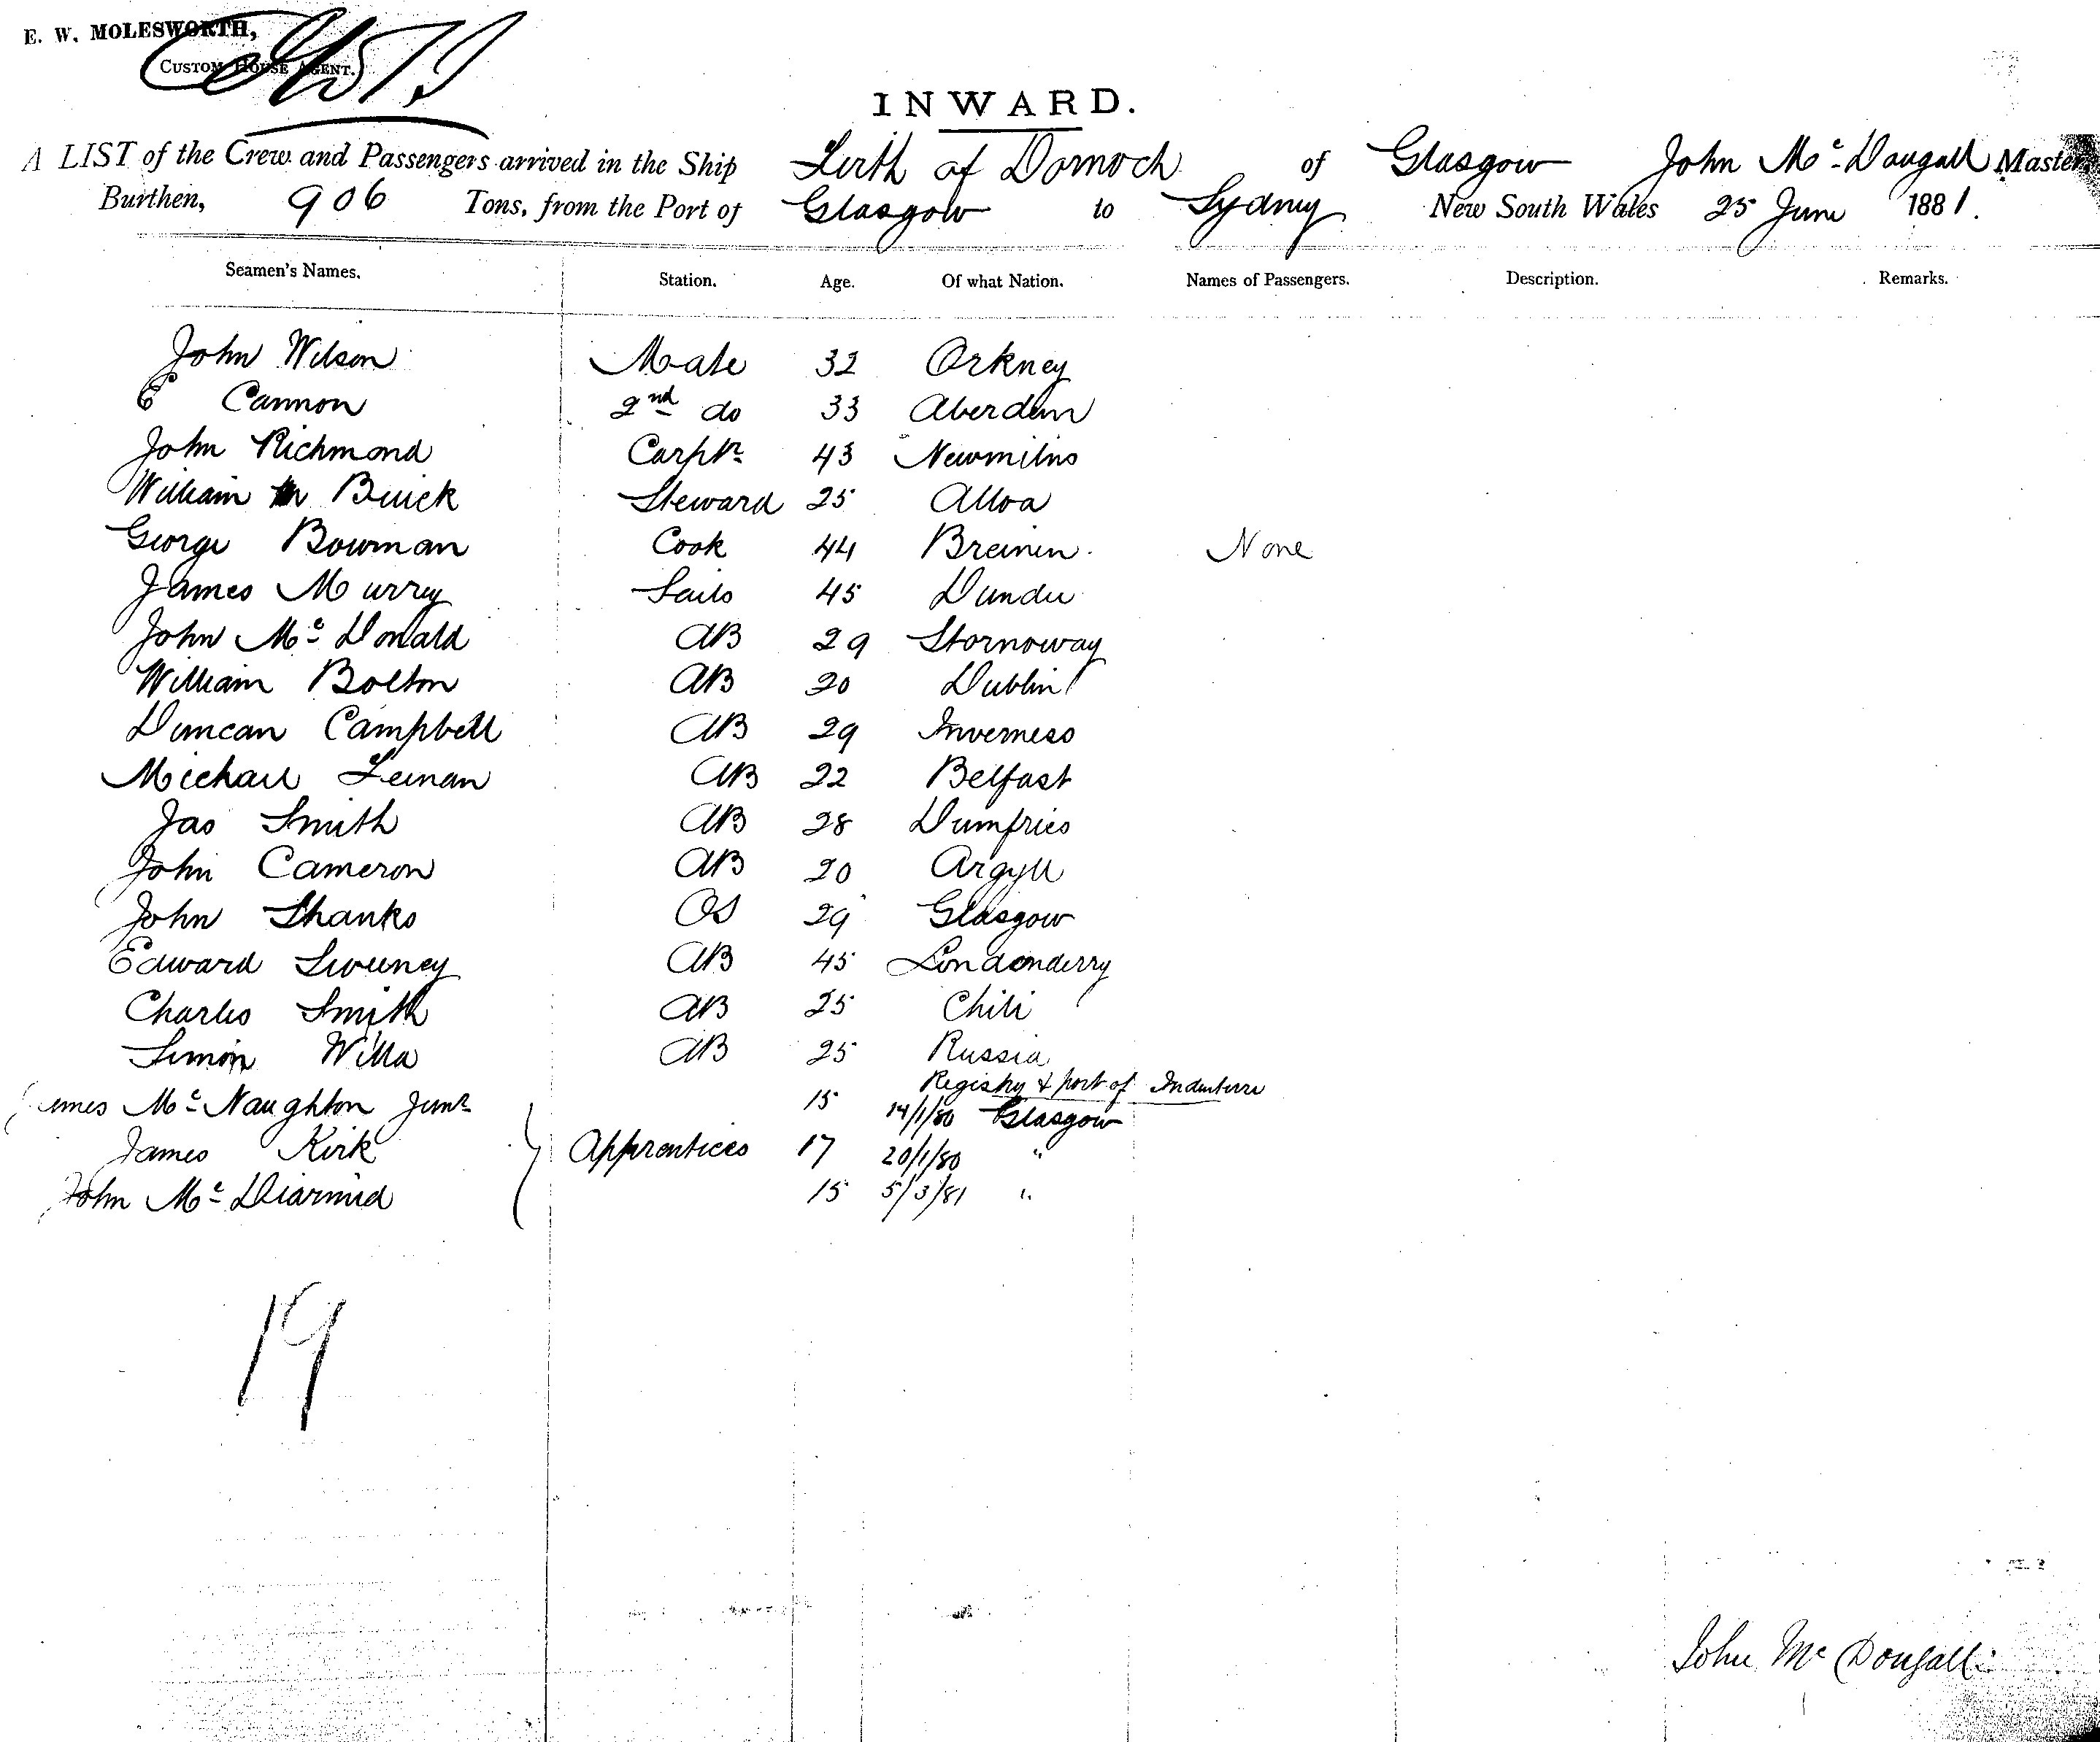 E. W. MOLESWORTH,
CUSTOM HOUSE AGENT.
INWARD.
A LIST of the Crew and Passengers arrived in the Ship Firth of Dornoch of Glasgow John Mc Dougall Master,
Burthen, 906 Tons, from the Port of Glasgow to Sydney New South Wales 25 June 1881.
Seamen's Names. Station. Age. Of what Nation. Names of Passengers. Description. Remarks.
John Wilson Mate 32 Orkney
C Cannon 2nd do 33 Aberdeen
John Richmond Carptr 43 Newmilns
William Buick Steward 25 Alloa
George Bowman Cook 44 Bremen None
James Murrey Sails 45 Dundee
John Mc Donald AB 29 Stornoway
William Bolton AB 20 Dublin
Duncan Campbell AB 29 Inverness
Michael Leenan AB 22 Belfast
Jas Smith AB 28 Dumfries
John Cameron AB 20 Argyll
John Shanks OS 29 Glasgow
Edward Sweeney AB 45 Londonderry
Charles Smith AB 25 Chili
Simon Willa AB 25 Russia
Registry & port of Indenture
James Mc Naughton Junr 15 14/1/80 Glasgow
James Kirk Apprentices 17 20/1/80 "
John Mc Diarmid 15 5/3/81 "
19
John Mc Dougall